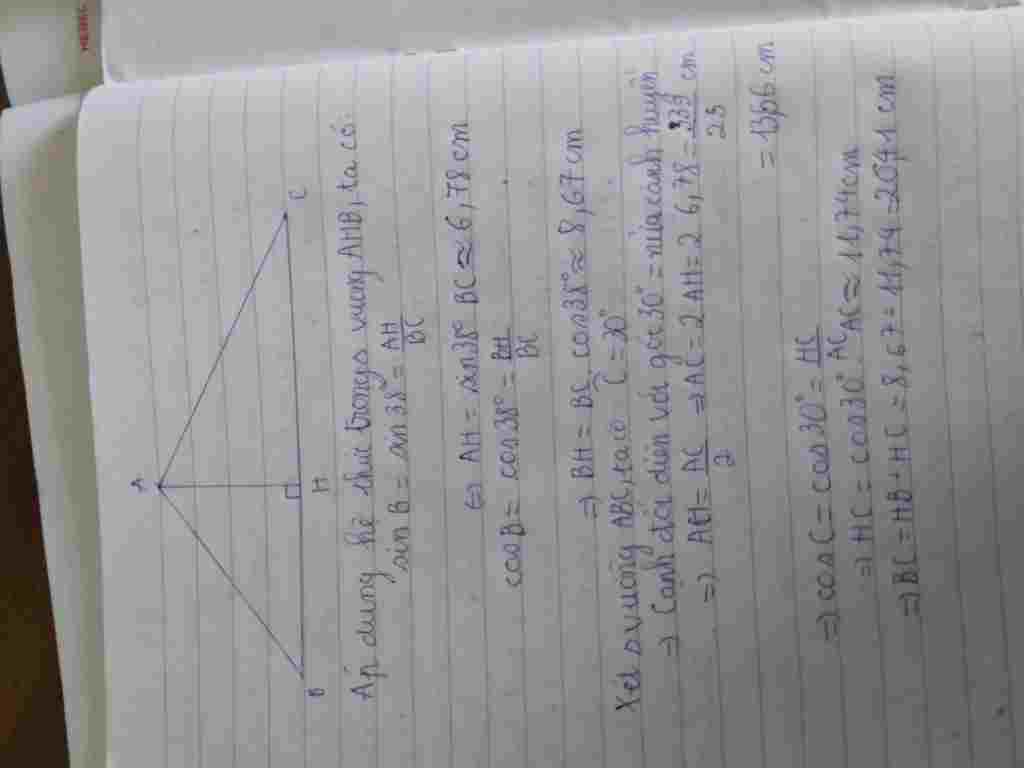 A
B
H
C
Áp dụng hệ thức trong Δ vuông AHB, ta có:
sin B = sin 38° = AH/BC
⇔ AH = sin38° BC ≈ 6,78 cm
cosB = cos38° = BH/BC
⇒ BH = BC. cos38° ≈ 8,67 cm
Xét Δ vuông ABC, ta có C = 30°
⇒ Cạnh đối diện với góc 30° = nửa cạnh huyền
⇒ AH = AC/2 ⇒ AC = 2 AH = 2 6,78 = 339/25 cm
= 13,56 cm
⇒ cosC = cos30° = HC/AC
⇒ HC = cos30° AC ≈ 11,74cm
⇒ BC = HB + HC = 8,67 = 11,74 = 20,41 cm